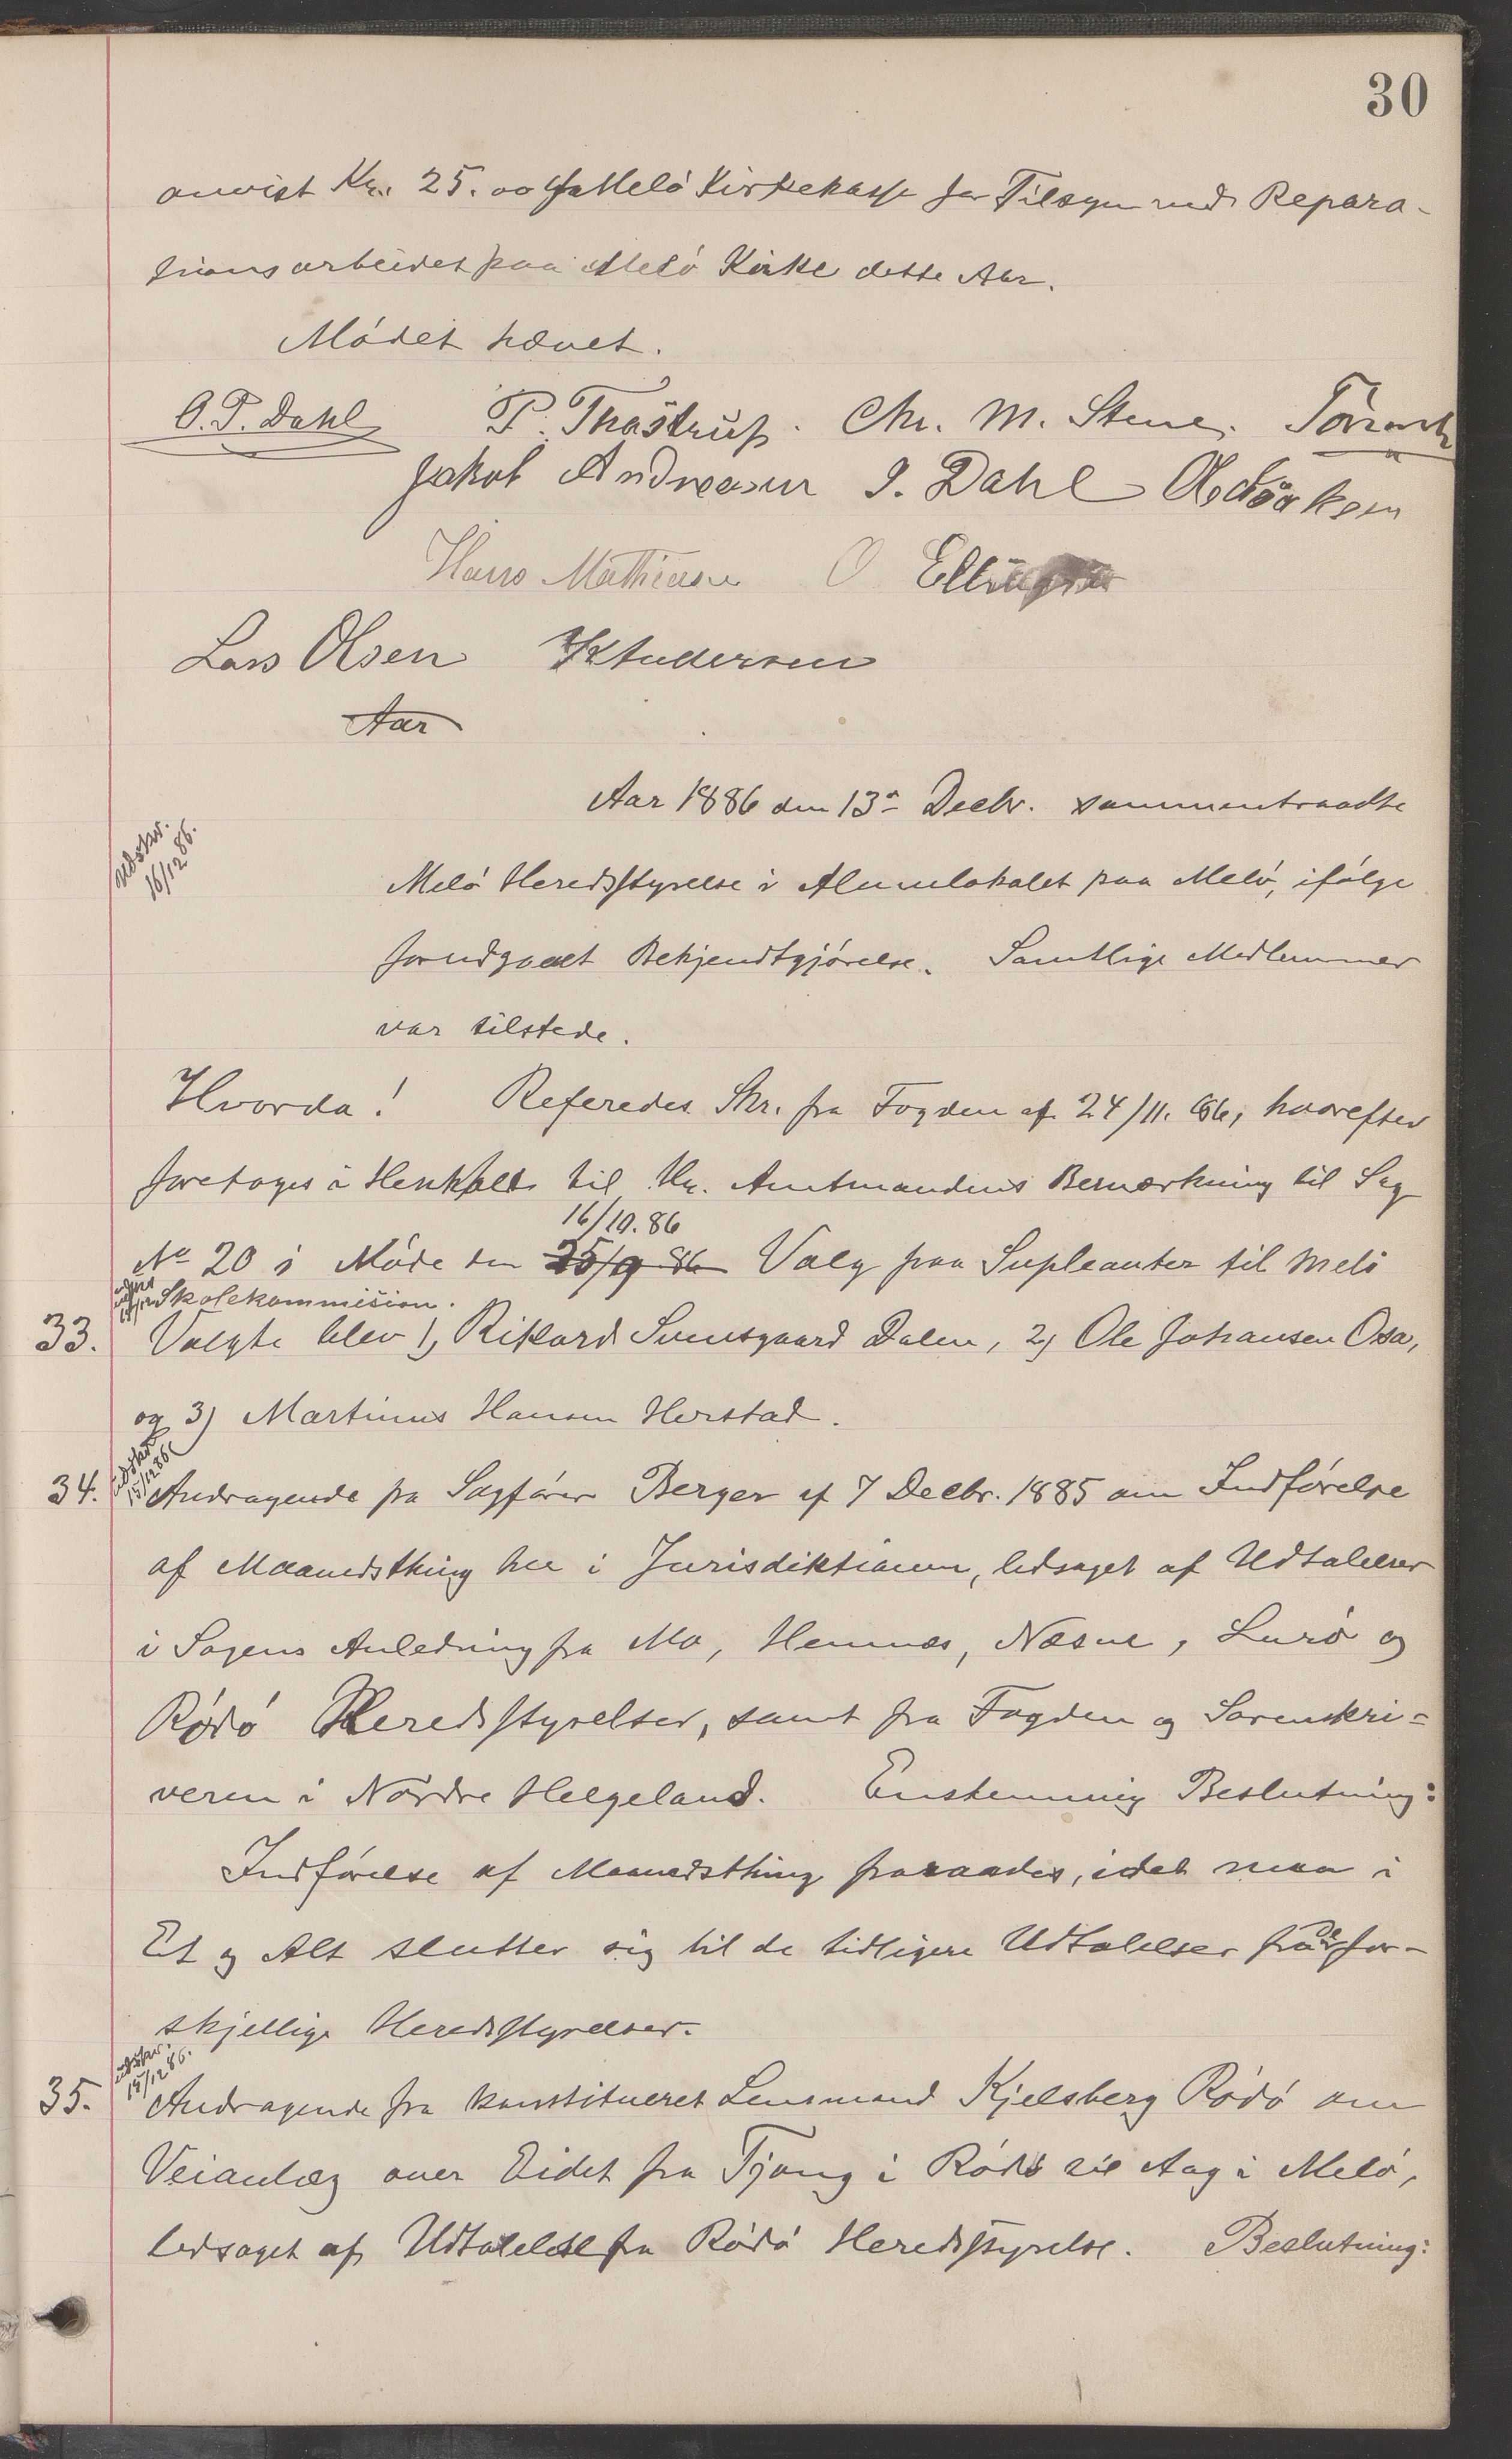 30
anvist Kr. 25.00 fra Melö Kirkekasse for Tilsyn med Repara-
tionsarbeidet paa Melö Kirke dette Aar.
Mödet hævet.
O. P. Dahl P. Thrastrup. Chr. M. Stene.
Jakob Andreasen J. Dahl
Hans Mathiasen O Ellingsen
Lars Olsen Andersen
Aar
Aar 1886 den 13de Decbr. sammentraadte
udskr.
16/12 86.
Melö Heredsstyrelse i Almuelokalet paa Melö, ifölge
forudgaaet Bekjendtgjörelse. Samtlige Medlemmer
var tilstede.
Hvorda! Referedes Skr. fra Fogden af 24/11. 86, hvorefter
foretoges i Henhold til Hr. Amtmandens Bemærkning til Sag
16/10. 86
No 20 i Möde den 25/9 86 Valg paa Supleanter til Melö
Skolekommision.
33. Valgte blev 1) Rikard Svensgaard Dalen, 2) Ole Johansen Osa,
og 3) Martinus Hansen Herstad.
udskr.
15/12 86
34. Andragende fra Sagförer Berger af 7 Decbr. 1885 om Indförelse
af Maanedsthing her i Jurisdiktionen, ledsaget af Udtalelser
i Sagens Anledning fra Mo, Hemnæs, Næsne, Lurö og
Rödö Heredsstyrelser, samt fra Fogden og Sorenskri=
veren i Nordre Helgeland. Enstemmig Beslutning:
Indförelse af Maanedsthing fraraades, idet man i
Et og Alt slutter sig til de tidligere Udtalelser fra de for-
skjellige Heredsstyrelser.
udskr.
15/12 86.
35. Andragende fra konstitueret Lensmand Kjelsberg Rödö om
Veianlæg over Eidet fra Tjong i Rödö til Aag i Melö,
ledsaget af Udtalelse fra Rödö Heredsstyrelse. Beslutning: